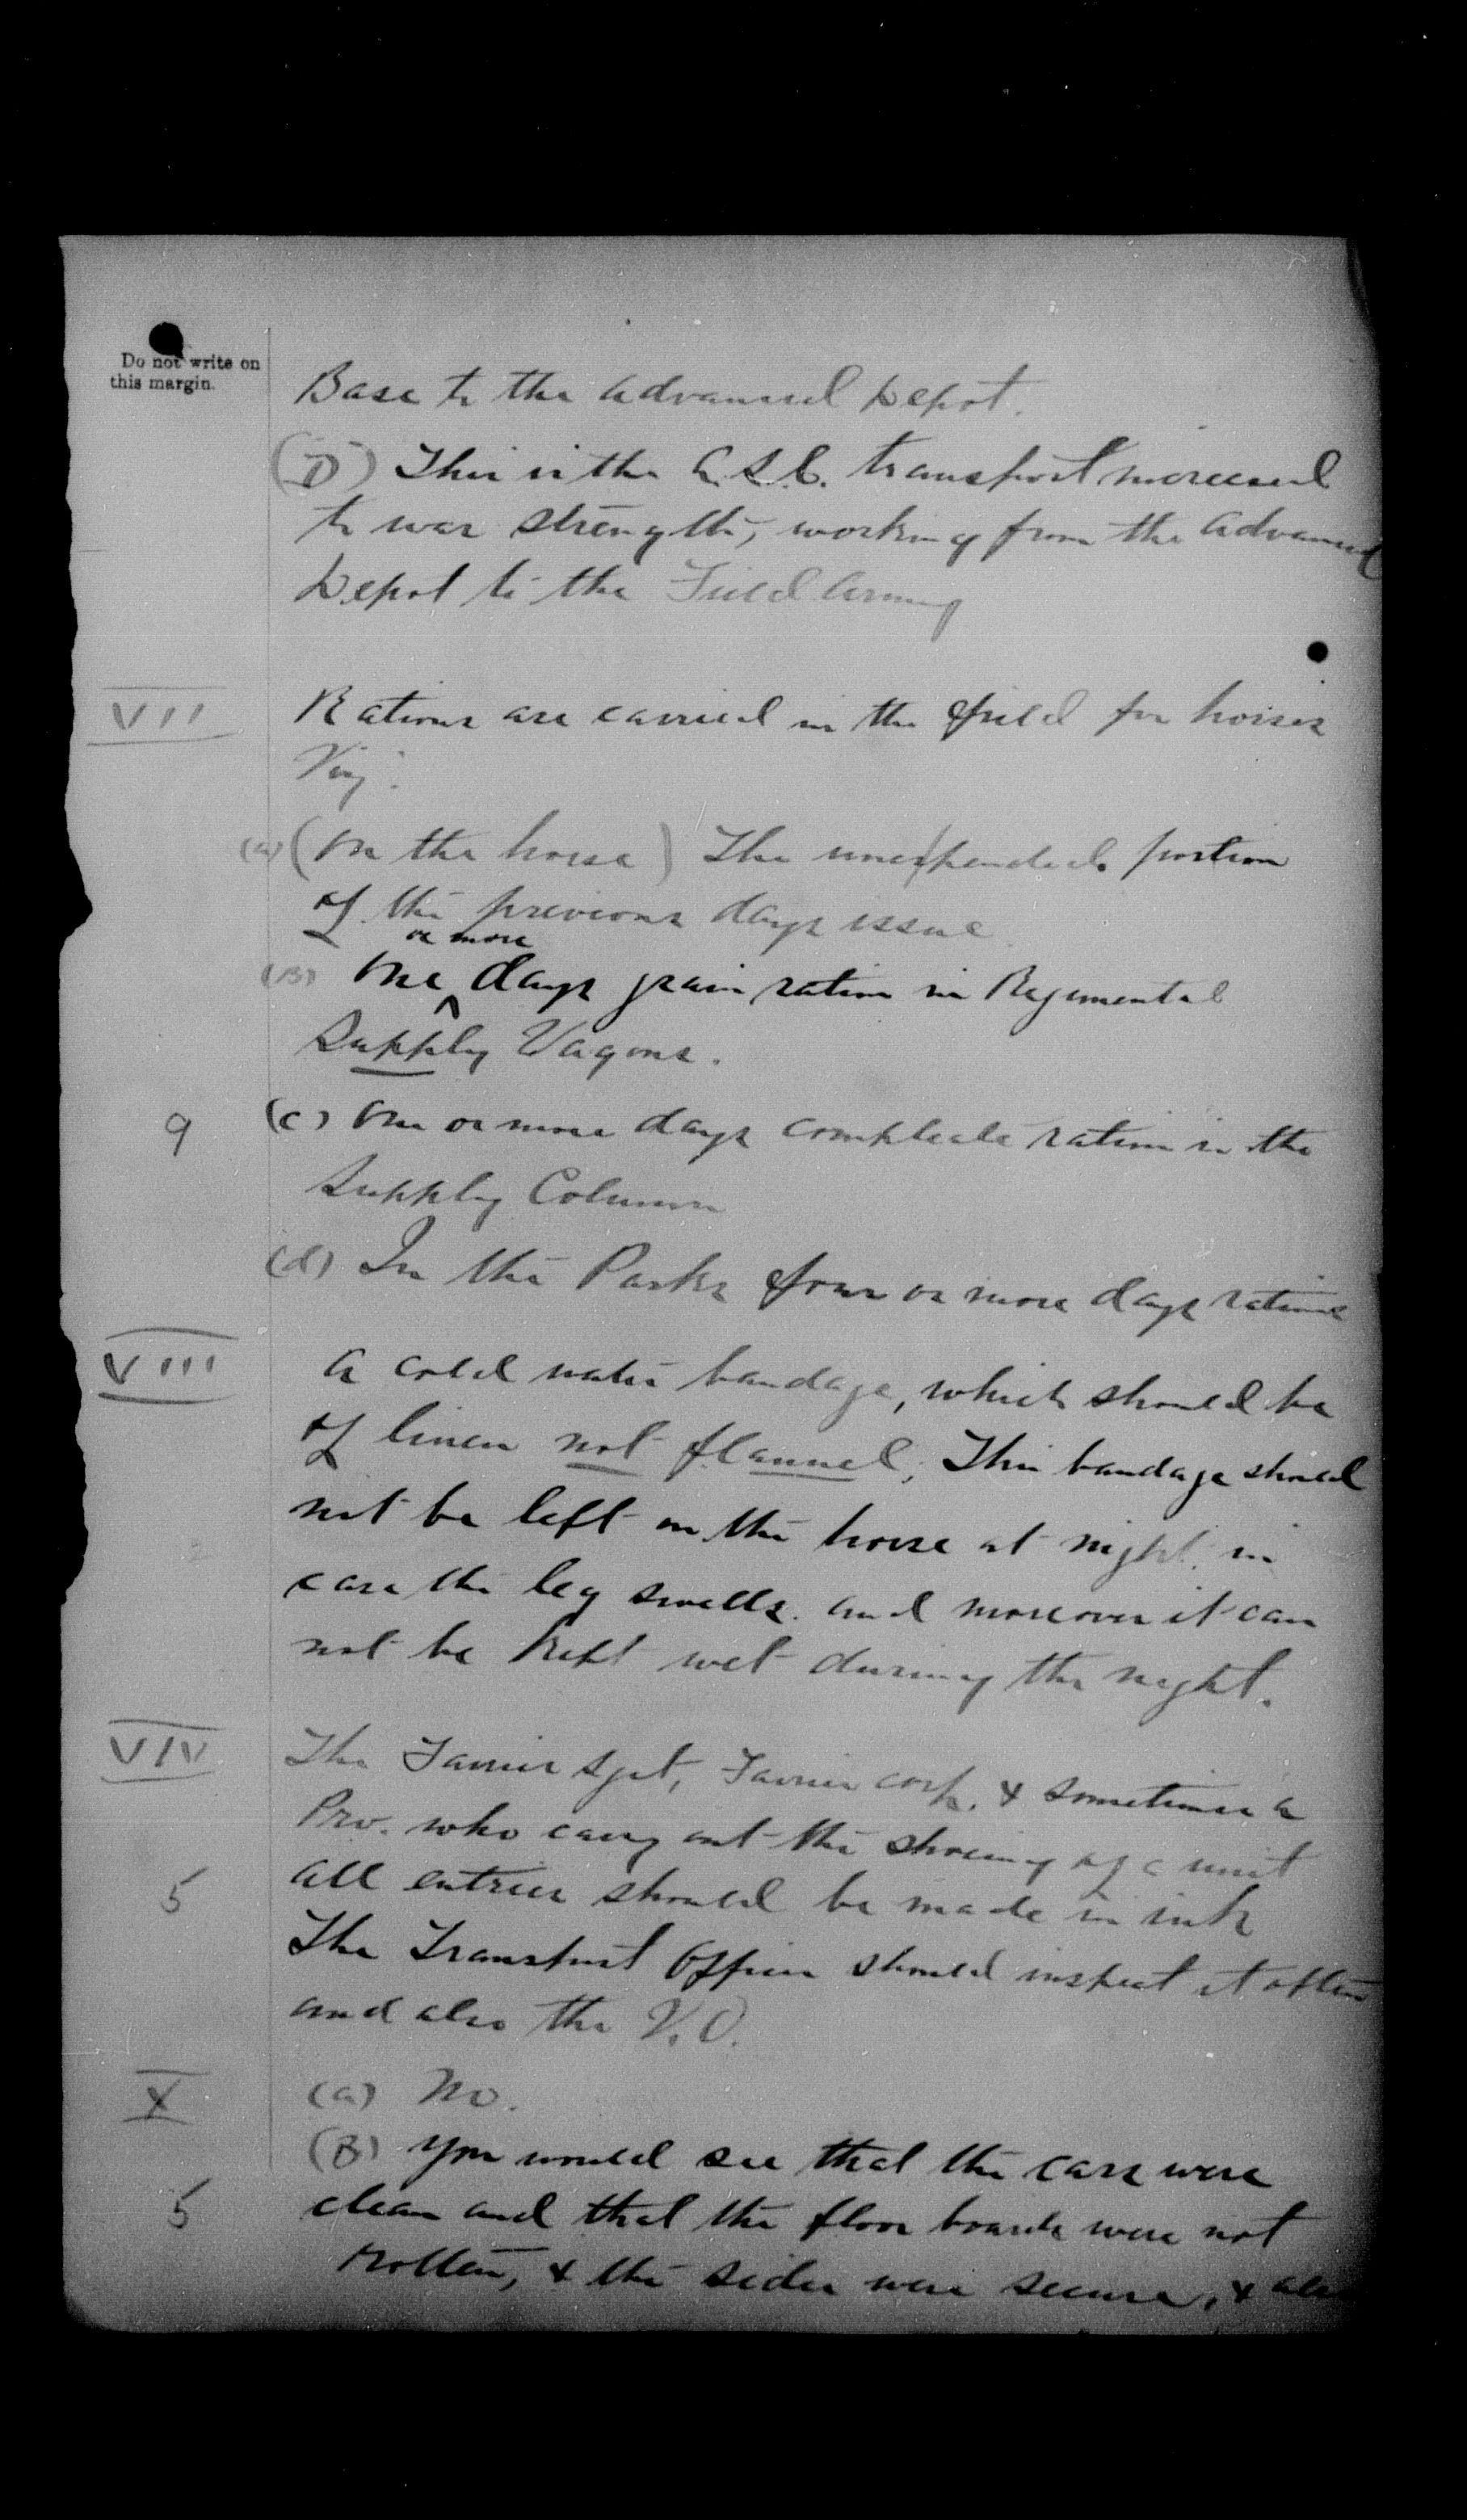 Do not write on
this margin.
Base to the Advanced Depot.
(D) This is the A.S.C. transport increased
to war strength, working from the Advanced
Depot to the Field Army
VII
Rations are carried in the field for horses
Viz:
(a) (On the horse) The unexpended portion
of the previous days issue
or more
(B) One ^ days grain ration in Regimental
Supply Wagons.
9
(c) One or more days complete ration in the
Supply Column
(d) In the Parks four or more days rations
VIII
A cold water bandage, which should be
of linen not flannel, This bandage should
not be left on the horse at night in
case the leg swells. and moreover it can
not be kept wet during the night.
VIV
The Farrier Sgt, Farrier Corp. & sometimes a
Prv. who carry out the shoeing of a unit
5
All entries should be made in ink
The Transport Officer should inspect it often
and also the V.O.
X
(a) No.
(B) You would see that the cars were
5
clean and that the floor boards were not
rotten, & the sides were secure, & also